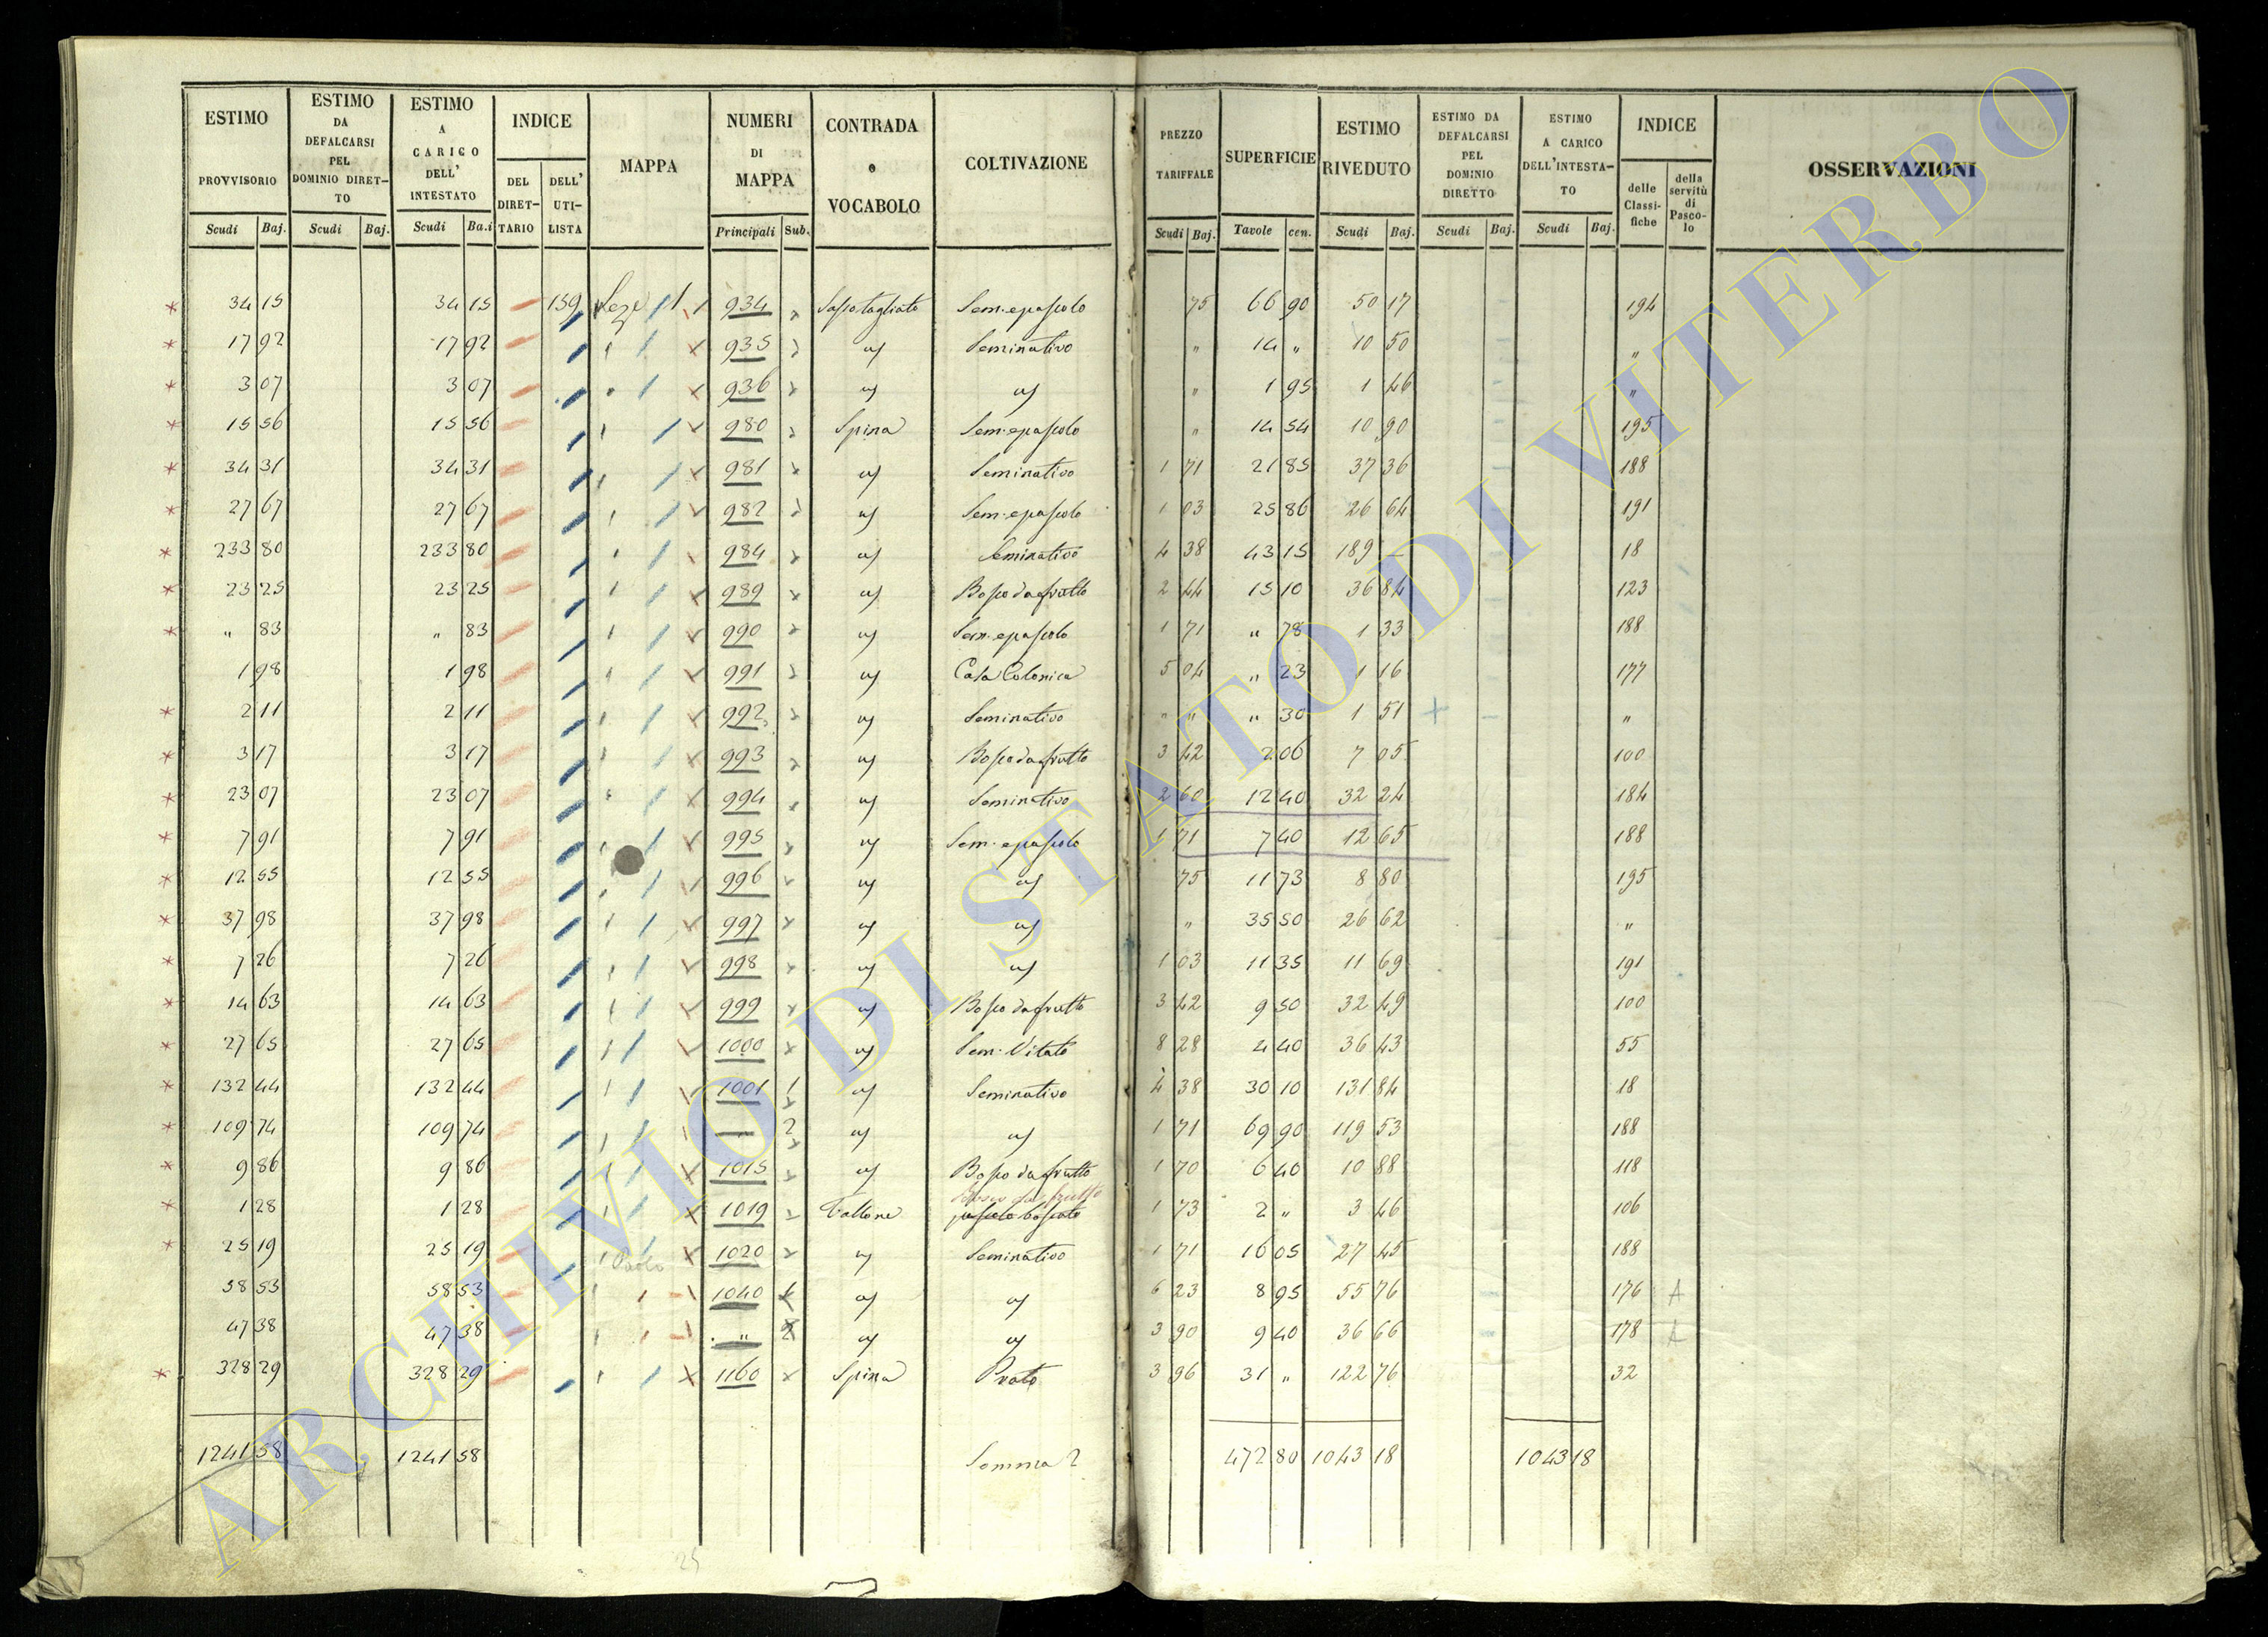 ESTIMO PROVVISORIO Scudi Baj.
ESTIMO DA DEFALCARSI PEL DOMINIO DIRETTO Scudi Baj.
ESTIMO A CARICO DELL' INTESTATO Scudi Ba.i
INDICE DEL DIRETTARIO DELL' UTILISTA
MAPPA
NUMERI DI MAPPA Principali Sub.
CONTRADA o VOCABOLO
COLTIVAZIONE
PREZZO TARIFFALE Scudi Baj.
SUPERFICIE Tavole cen.
ESTIMO RIVEDUTO Scudi Baj.
ESTIMO DA DEFALCARSI PEL DOMINIO DIRETTO Scudi Baj.
ESTIMO A CARICO DELL'INTESTATO Scudi Baj.
INDICE delle Classifiche della servitù di Pascolo
OSSERVAZIONI
34 15 34 15 139 934 Sassotagliato Sem. e pascolo 75 66 90 50 17 194
17 92 17 92 935 " Seminativo " 14 " 10 50 "
3 07 3 07 936 " " " 1 95 1 46 "
15 56 15 56 980 Spina Sem. e pascolo " 14 54 10 90 195
34 31 34 31 981 " Seminativo 1 71 21 85 37 36 188
27 67 27 67 982 " Sem. e pascolo 1 03 25 86 26 64 191
233 80 233 80 984 " Seminativo 4 38 43 15 189 — 18
23 25 23 25 989 " Bosco da frutto 2 44 15 10 36 84 123
" 83 " 83 990 " Sem. e pascolo 1 71 " 78 1 33 188
1 98 1 98 991 " Casa Colonica 5 04 " 23 1 16 177
2 11 2 11 992 " Seminativo " " " 30 1 51 "
3 17 3 17 993 " Bosco da frutto 3 42 2 06 7 05 100
23 07 23 07 994 " Seminativo 2 60 12 40 32 24 184
7 91 7 91 995 " Sem. e pascolo 1 71 7 40 12 65 188
12 55 12 55 996 " " 75 11 73 8 80 195
37 98 37 98 997 " " " 35 50 26 62 "
7 26 7 26 998 " " 1 03 11 35 11 69 191
14 63 14 63 999 " Bosco da frutto 3 42 9 50 32 49 100
27 65 27 65 1000 " Sem. Vitato 8 28 4 40 36 43 55
132 44 132 44 1001 1 " Seminativo 4 38 30 10 131 84 18
109 74 109 74 " 2 " " 1 71 69 90 119 53 188
9 86 9 86 1015 " Bosco da frutto 1 70 6 40 10 88 118
Bosco da frutto
1 28 1 28 1019 pascolo boscato 1 73 2 " 3 46 106
25 19 25 19 1020 " Seminativo 1 71 16 05 27 45 188
58 53 58 53 1040 1 " " 6 23 8 95 55 76 176 A
47 38 47 38 " 2 " " 3 90 9 40 36 66 178 A
328 29 328 29 1160 Spina Prato 3 96 31 " 122 76 32
1241 58 1241 58 Somma 472 80 1043 18 1043 18
25
ARCHIVIO DI STATO DI VITERBO